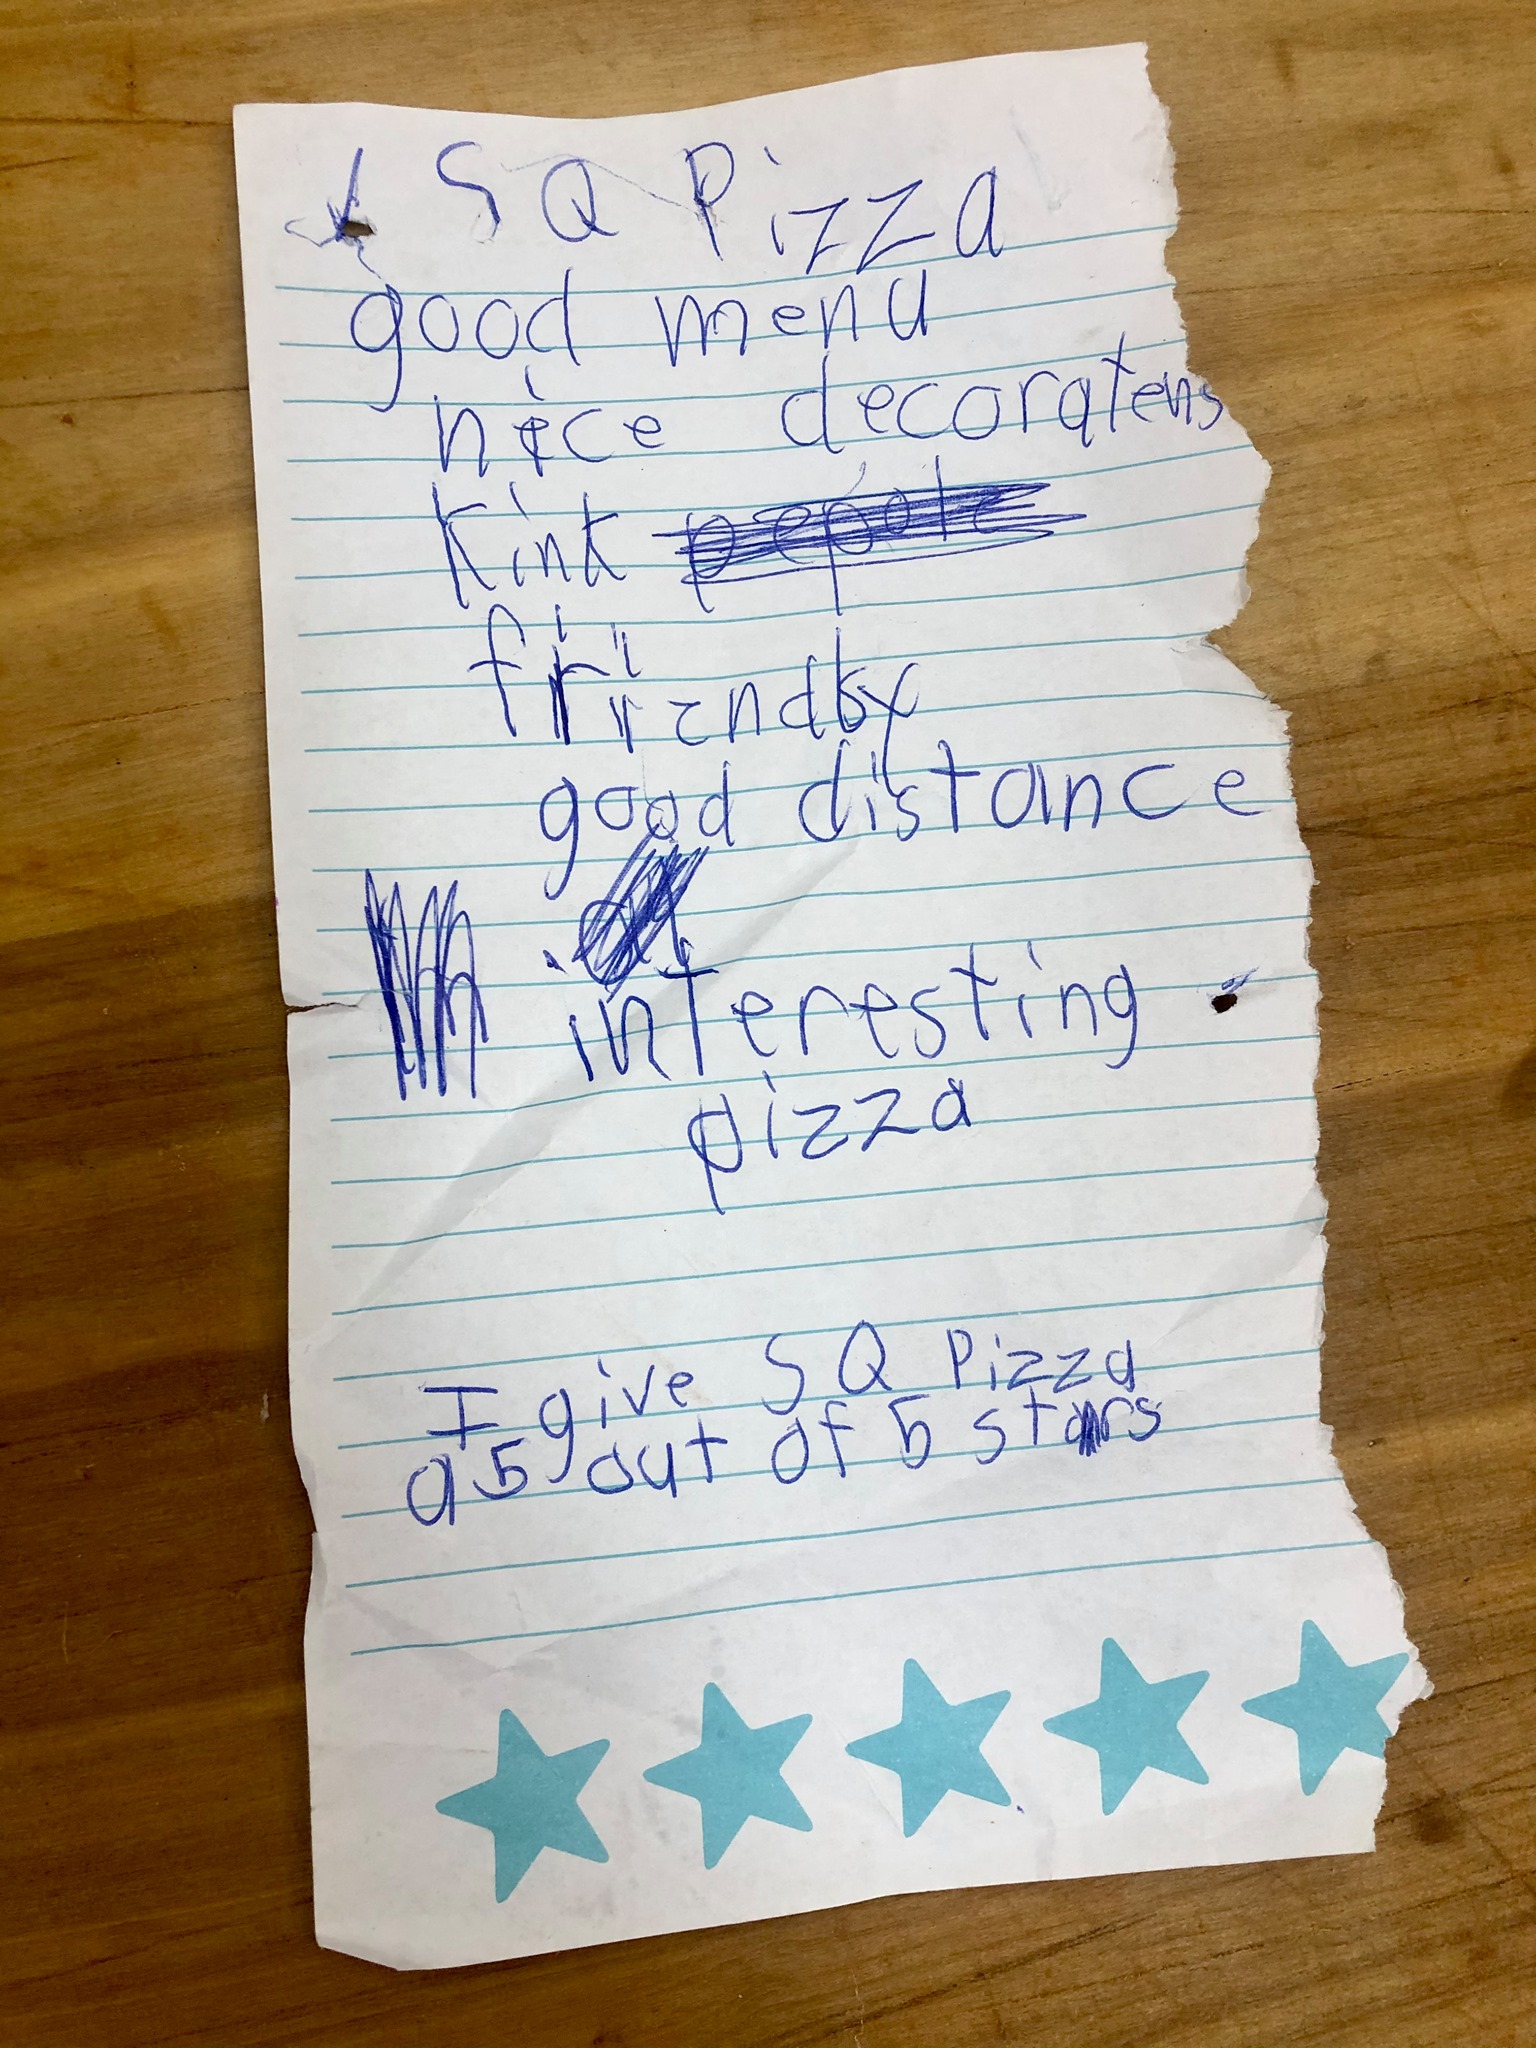 SQ Pizza
good menu
nice decoratens
kink
friendly
good distance
interesting
pizza
I give SQ Pizza
a 5 out of 5 stars